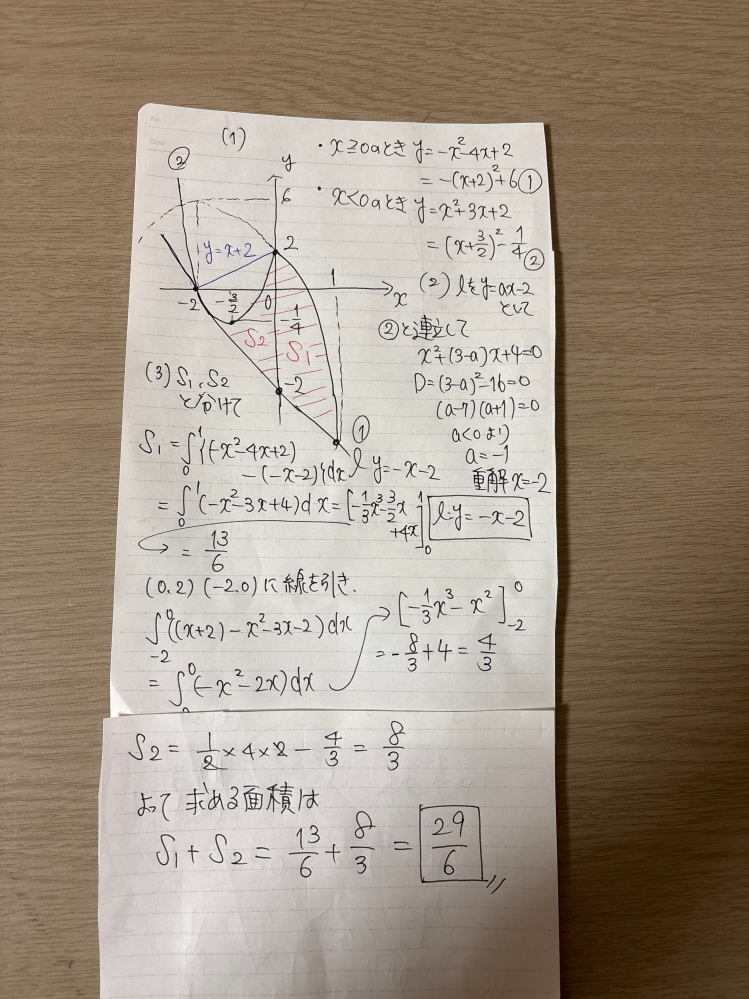 (1)
・x≧0のとき y=-x²-4x+2
=-(x+2)²+6 ①
・x<0のとき y=x²+3x+2
=(x+3/2)²-1/4 ②
② y 6
y=x+2 2
-2 -3/2 0 1 x
-1/4
S2 S1
-2
①
l y=-x-2
(2) lをy=ax-2
として
②と連立して
x²+(3-a)x+4=0
D=(3-a)²-16=0
(a-7)(a+1)=0
a<0より
a=-1
重解x=-2
l:y=-x-2
(3) S1、S2
と分けて
S1=∫₀¹{(-x²-4x+2)
-(-x-2)}dx
=∫₀¹(-x²-3x+4)dx=[-1/3x³-3/2x+4x]₀¹
=13/6
(0.2)(-2.0)に線を引き、
∫₋₂⁰((x+2)-x²-3x-2)dx
=∫⁰(-x²-2x)dx
→[-1/3x³-x²]₋₂⁰
=-8/3+4=4/3
S2=1/2×4×2-4/3=8/3
よって求める面積は
S1+S2=13/6+8/3=29/6